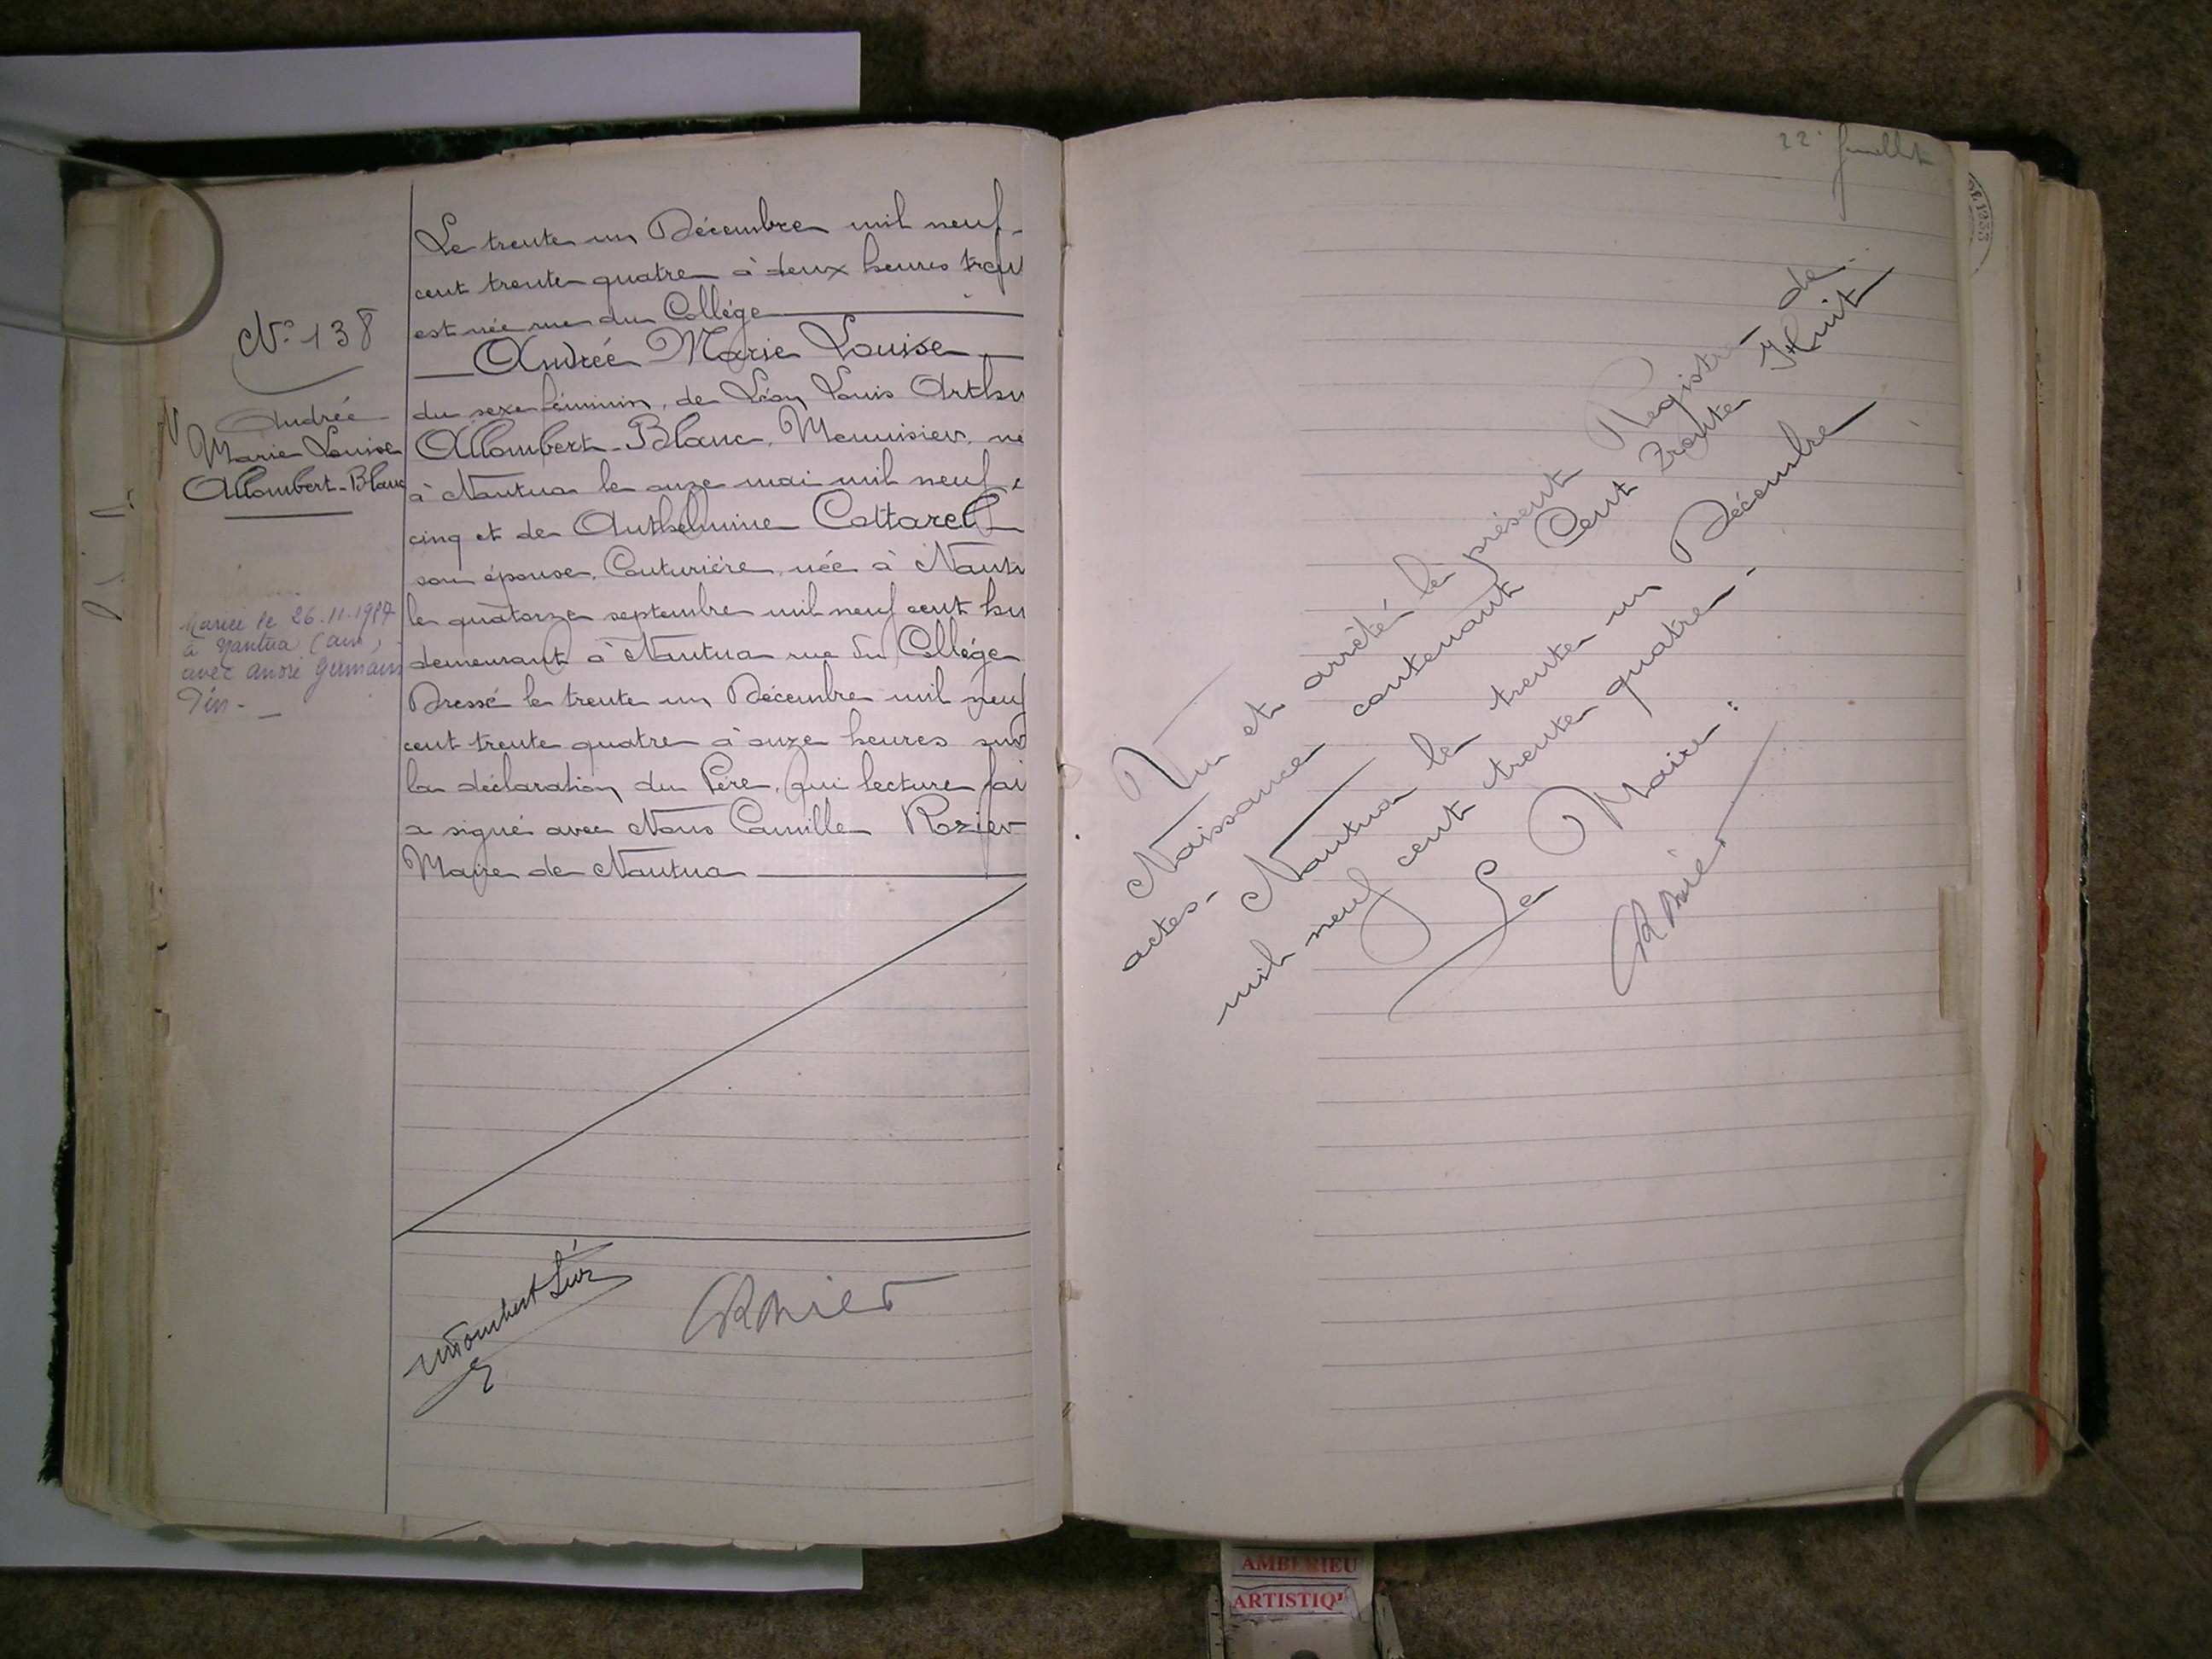 N° 138
Andrée
Marie Louise
Allombert-Blanc
Mariée le 26.11.1987
à Nantua (ain)
avec André Germain
Pin -
Le trente un Décembre mil neuf-
cent trente quatre à deux heures
est née rue du Collége
Andrée Marie Louise
du sexe féminin, de Léon Louis Arthu
Allombert-Blanc, Menuisier, né
à Nantua le onze mai mil neuf c
cinq et de Anthelmine Cottarel
son épouse, Couturière, née à Nantu
le quatorze septembre mil neuf cent hu
demeurant à Nantua rue du Collége
Dressé le trente un Décembre mil neuf
cent trente quatre à onze heures sur
la déclaration du Père, qui lecture fai
a signé avec Nous Camille Rozier
Maire de Nantua
Allombert Léon
CRozier
22° feuillet
Vu et arrêté le présent Registre de
Naissance contenant Cent Trente Huit
actes- Nantua le trente un Décembre
mil neuf cent trente quatre-
Le Maire:
CRozier
AMBERIEU
ARTISTIQ